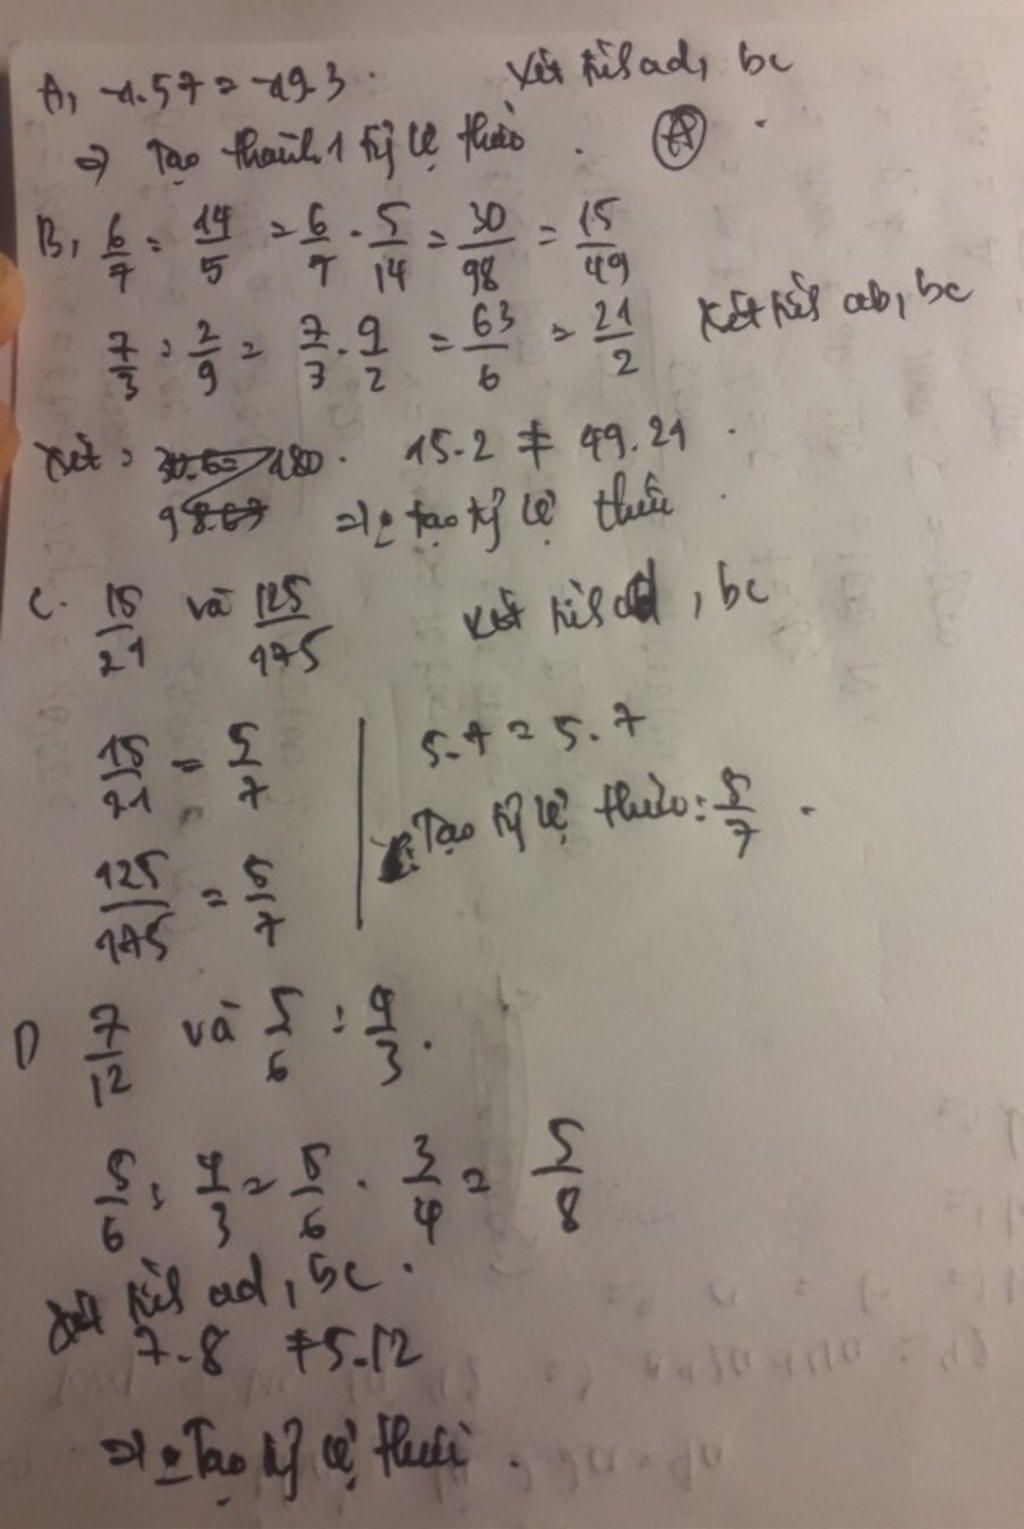 A, -1.57 = -19.3. Xét tích ad, bc
⇒ Tạo thành 1 tỷ lệ thức. (A)
B, 6/7 : 14/5 = 6/7 . 5/14 = 30/98 = 15/49
7/3 : 2/9 = 7/3 . 9/2 = 63/6 = 21/2 Xét tích ab, bc
Xét: 15.2 ≠ 49.21.
⇒ tạo tỷ lệ thức.
C. 15/21 và 125/175 Xét tích ad, bc
15/21 = 5/7 5.7 = 5.7
Tạo tỷ lệ thức: 5/7.
125/175 = 5/7
D 7/12 và 5/6 : 4/3.
5/6 : 4/3 = 5/6 . 3/4 = 5/8
Xét tích ad, bc.
7.8 ≠ 5.12
⇒ Tạo tỷ lệ thức.